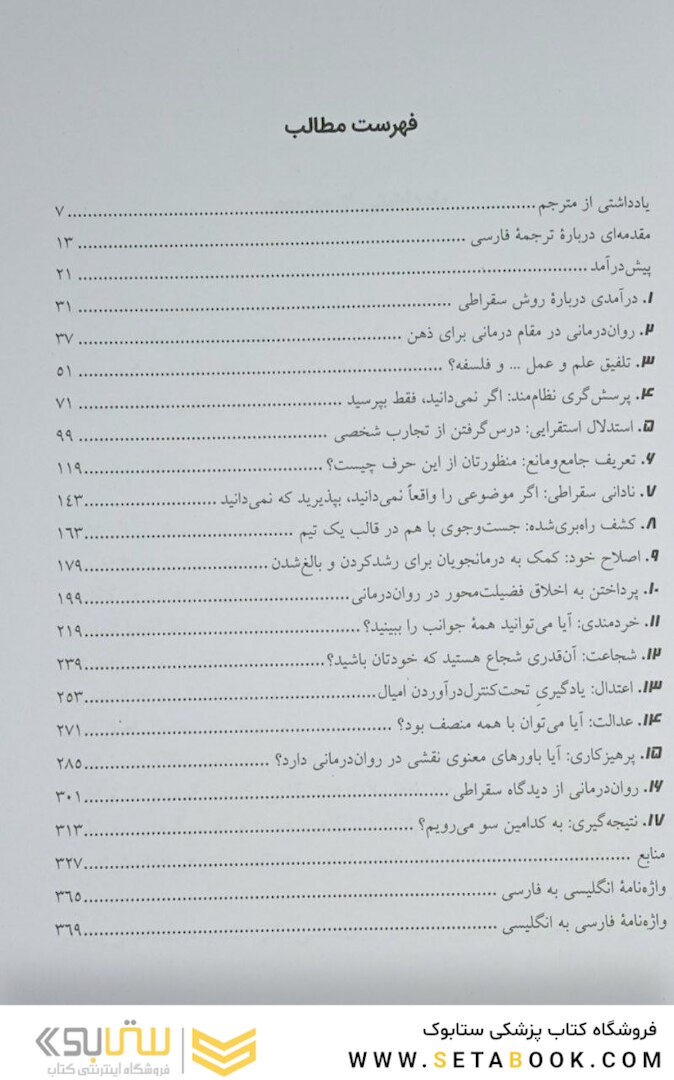 فهرست مطالب
یادداشتی از مترجم ........ ۷
مقدمه‌ای دربارهٔ ترجمهٔ فارسی ........ ۱۳
پیش‌درآمد ........ ۲۱
۱. درآمدی دربارهٔ روش سقراطی ........ ۳۱
۲. روان‌درمانی در مقام درمانی برای ذهن ........ ۳۷
۳. تلفیق علم و عمل ... و فلسفه؟ ........ ۵۱
۴. پرسش‌گری نظام‌مند: اگر نمی‌دانید، فقط بپرسید ........ ۷۱
۵. استدلال استقرایی: درس‌گرفتن از تجارب شخصی ........ ۹۹
۶. تعریف جامع‌ومانع: منظورتان از این حرف چیست؟ ........ ۱۱۹
۷. نادانی سقراطی: اگر موضوعی را واقعاً نمی‌دانید، بپذیرید که نمی‌دانید ........ ۱۴۳
۸. کشف راه‌بری‌شده: جست‌وجوی با هم در قالب یک تیم ........ ۱۶۳
۹. اصلاح خود: کمک به درمانجویان برای رشدکردن و بالغ‌شدن ........ ۱۷۹
۱۰. پرداختن به اخلاق فضیلت‌محور در روان‌درمانی ........ ۱۹۹
۱۱. خردمندی: آیا می‌توانید همهٔ جوانب را ببینید؟ ........ ۲۱۹
۱۲. شجاعت: آن‌قدری شجاع هستید که خودتان باشید؟ ........ ۲۳۹
۱۳. اعتدال: یادگیریِ تحت‌کنترل‌درآوردن امیال ........ ۲۵۳
۱۴. عدالت: آیا می‌توان با همه منصف بود؟ ........ ۲۷۱
۱۵. پرهیزکاری: آیا باورهای معنوی نقشی در روان‌درمانی دارد؟ ........ ۲۸۵
۱۶. روان‌درمانی از دیدگاه سقراطی ........ ۳۰۱
۱۷. نتیجه‌گیری: به کدامین سو می‌رویم؟ ........ ۳۱۳
منابع ........ ۳۲۷
واژه‌نامهٔ انگلیسی به فارسی ........ ۳۶۵
واژه‌نامهٔ فارسی به انگلیسی ........ ۳۶۹
فروشگاه کتاب پزشکی ستابوک
WWW.SETABOOK.COM
ستابوک
فروشگاه اینترنتی کتاب